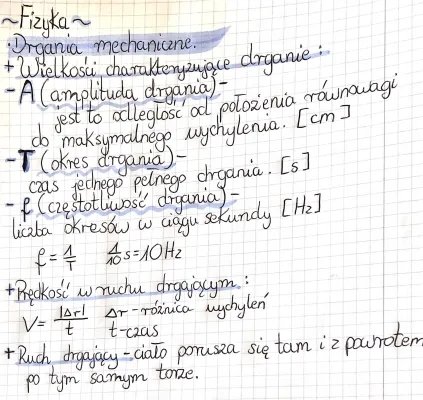 ~Fizyka~
·Drgania mechaniczne.
+ Wielkości charakteryzujące drganie:
- A (amplituda drgania) -
jest to odległość od położenia równowagi
do maksymalnego wychylenia. [cm]
- T (okres drgania) -
czas jednego pełnego drgania. [s]
- f (częstotliwość drgania) -
liczba okresów w ciągu sekundy [Hz]
f = 1/T 1/10 s = 10Hz
+ Prędkość w ruchu drgającym:
V = |Δr|/t Δr - różnica wychyleń
t - czas
+ Ruch drgający - ciało porusza się tam i z powrotem
po tym samym torze.